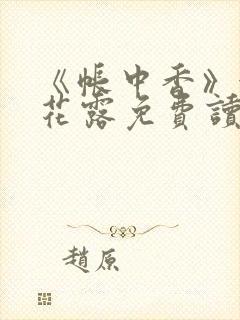 《帳中香》
花露免費讀
趙原